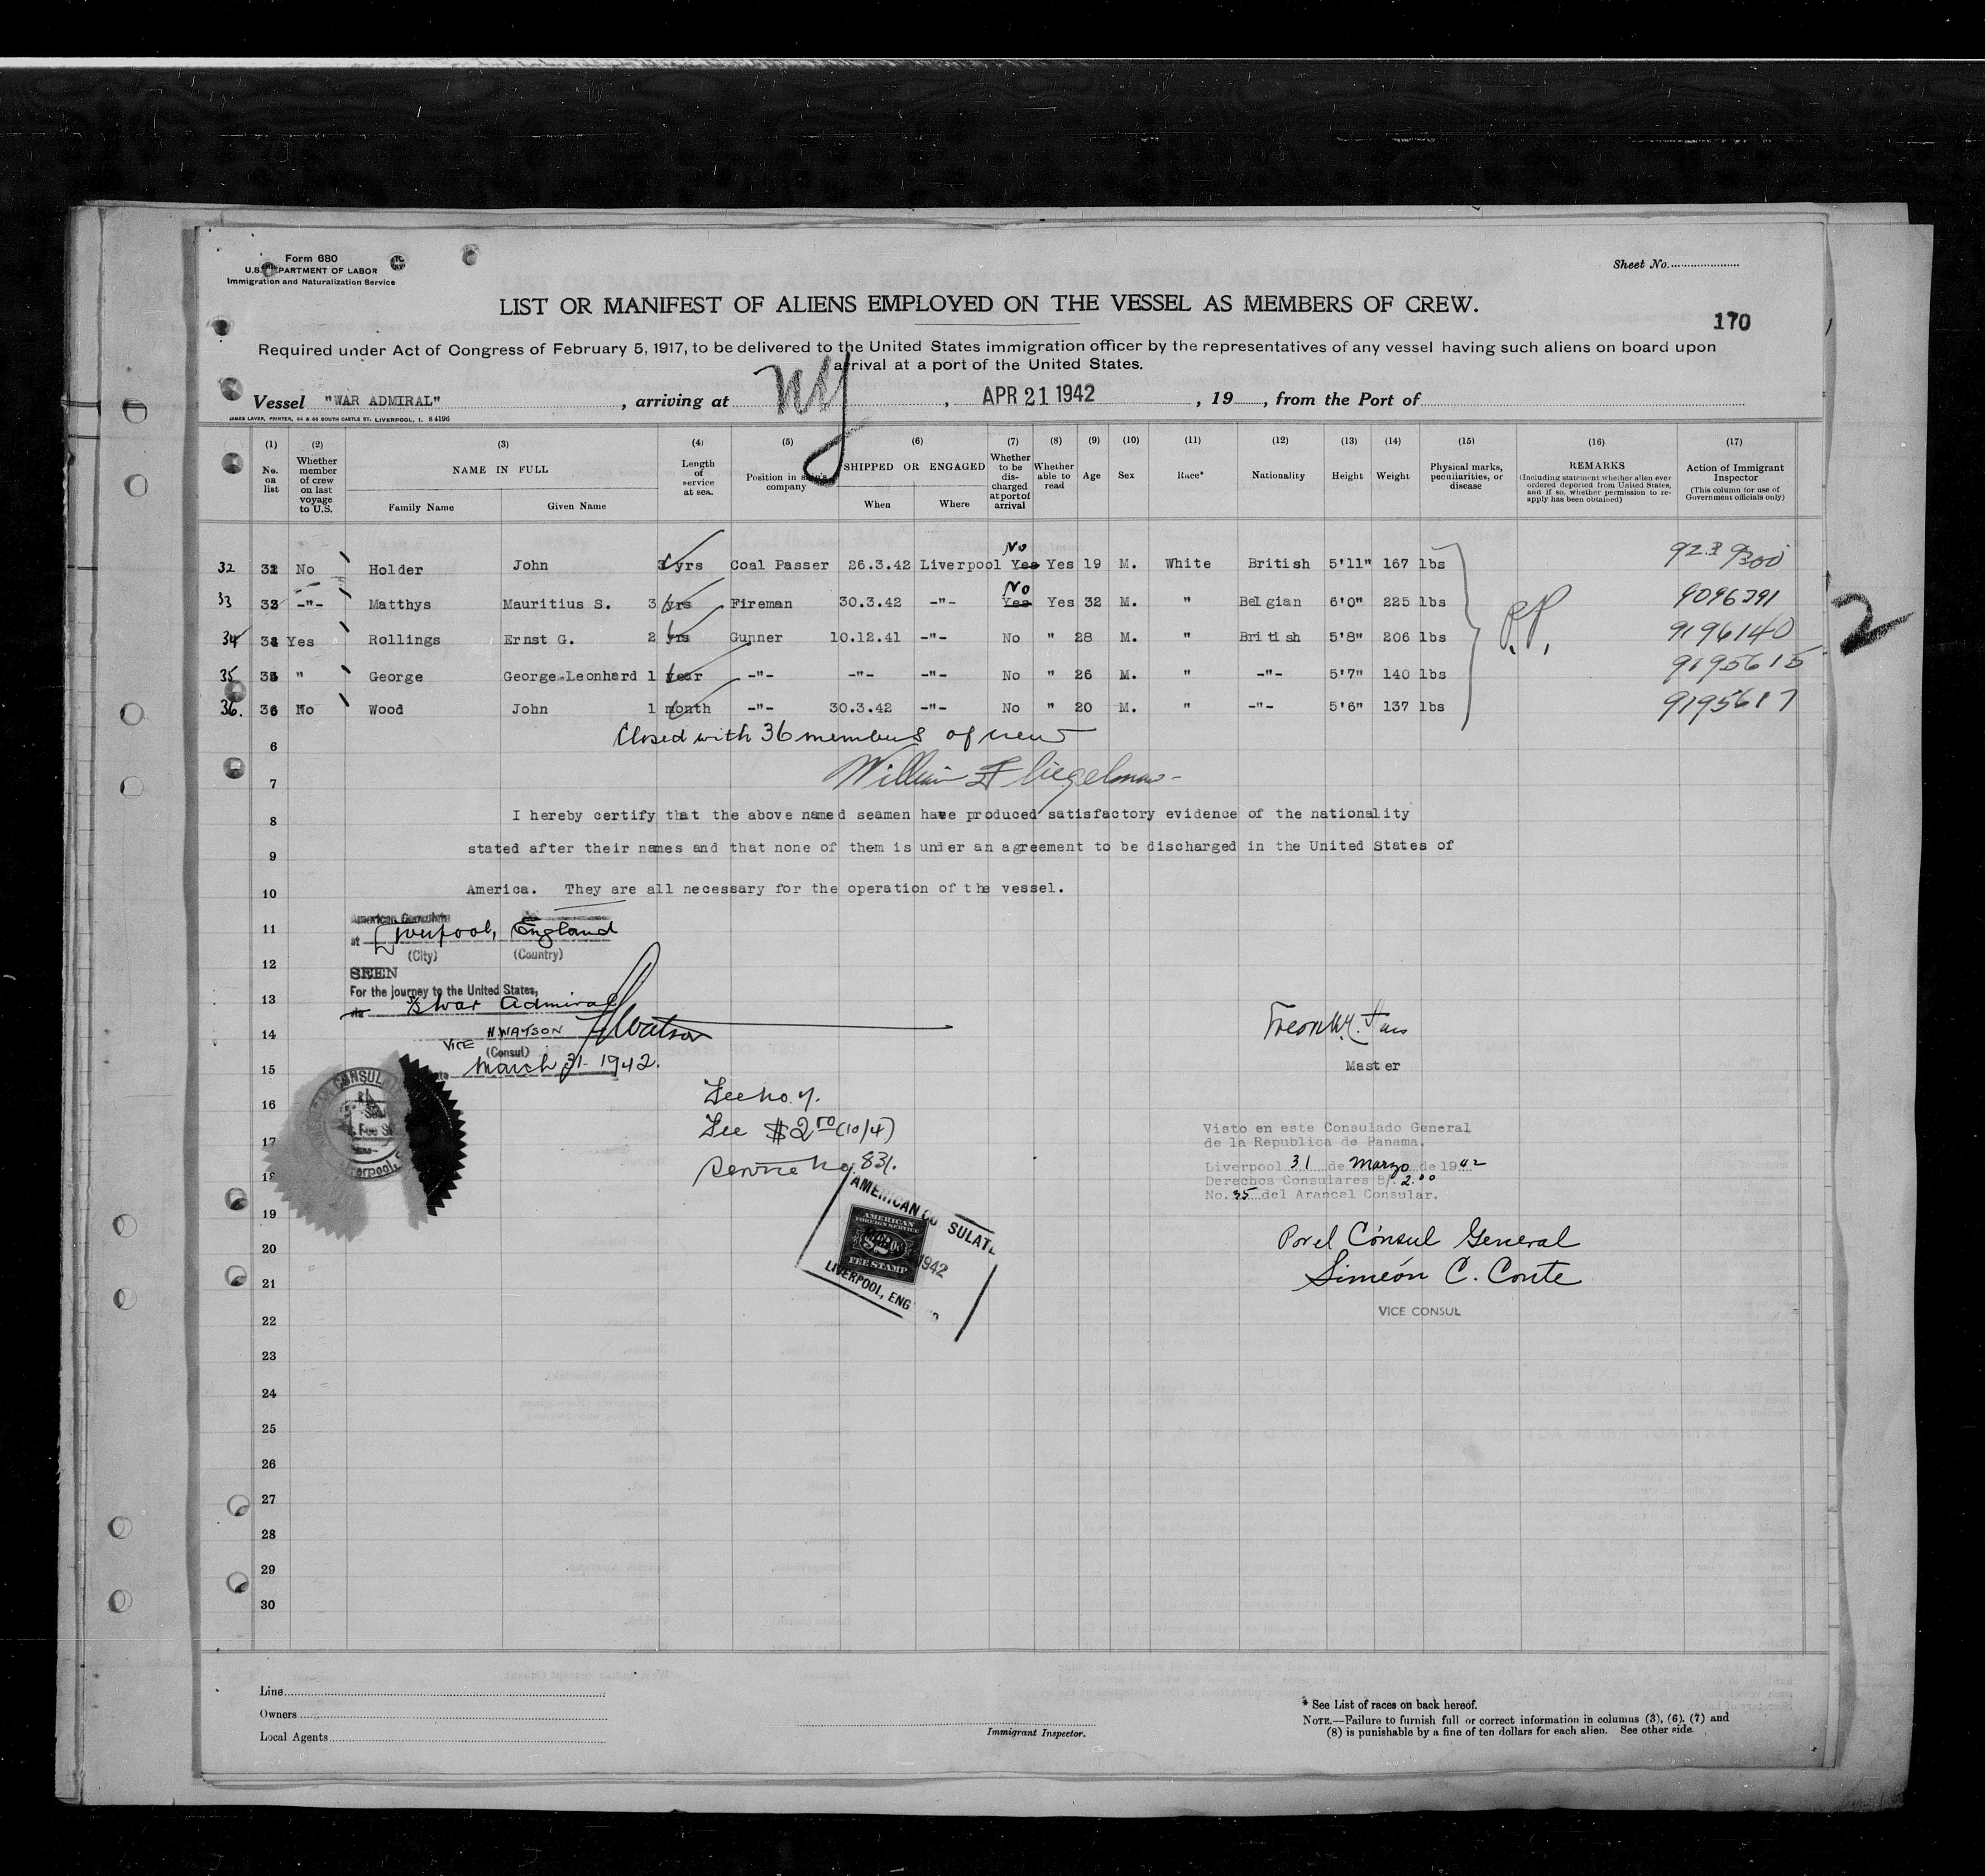 Form 680
U.S. DEPARTMENT OF LABOR
Immigration and Naturalization Service
Sheet No.
LIST OR MANIFEST OF ALIENS EMPLOYED ON THE VESSEL AS MEMBERS OF CREW.
170
Required under Act of Congress of February 5, 1917, to be delivered to the United States immigration officer by the representatives of any vessel having such aliens on board upon
arrival at a port of the United States.
Vessel "WAR ADMIRAL", arriving at NY, APR 21 1942, 19, from the Port of
JAMES LAVER, PRINTER, 64 & 66 SOUTH CASTLE ST. LIVERPOOL, 1. S 4196
(1) No. on list
(2) Whether member of crew on last voyage to U.S.
(3) NAME IN FULL Family Name Given Name
(4) Length of service at sea.
(5) Position in ship's company
(6) SHIPPED OR ENGAGED When Where
(7) Whether to be discharged at port of arrival
(8) Whether able to read
(9) Age
(10) Sex
(11) Race*
(12) Nationality
(13) Height
(14) Weight
(15) Physical marks, peculiarities, or disease
(16) REMARKS (Including statement whether alien ever ordered deported from United States, and if so, whether permission to re-apply has been obtained)
(17) Action of Immigrant Inspector (This column for use of Government officials only)
No
32 32 No Holder John yrs Coal Passer 26.3.42 Liverpool Yes Yes 19 M. White British 5'11" 167 lbs
No
33 33 -"- Matthys Mauritius S. 3 yrs Fireman 30.3.42 -"- Yes Yes 32 M. " Belgian 6'0" 225 lbs 9096391
34 34 Yes Rollings Ernst G. 2 yrs Gunner 10.12.41 -"- No " 28 M. " British 5'8" 206 lbs R.P. 9196140 2
35 35 " George George-Leonhard 1 year -"- -"- -"- No " 26 M. " -"- 5'7" 140 lbs 9195615
36. 36 No Wood John 1 month -"- 30.3.42 -"- No " 20 M. " -"- 5'6" 137 lbs 9195617
Closed with 36 members of crew
6
William
7
8 I hereby certify that the above named seamen have produced satisfactory evidence of the nationality
9 stated after their names and that none of them is under an agreement to be discharged in the United States of
10 America. They are all necessary for the operation of the vessel.
American Consulate
11 at Liverpool, England
(City) (Country)
12
SEEN
For the journey to the United States,
13 S/S War Admiral
14 H. WATSON HWatson
VICE (Consul)
15 March 31 1942.
Master
16
17
18
19
20
21
22
23
24
25
26
27
28
29
30
AMERICAN CONSUL
Liverpool,
Fee No. 4.
Fee $2.00 (10/4)
Service No. 831.
AMERICAN CONSULATE
AMERICAN FOREIGN SERVICE
$2
FEE STAMP
1942
LIVERPOOL, ENG
Visto en este Consulado General
de la Republica de Panama.
Liverpool 31 de Marzo de 1942
Derechos Consulares B/. 2.00
No. 35 del Arancel Consular.
Por el Cónsul General
Simeón C. Conte
VICE CONSUL
Line
Owners
Local Agents
Immigrant Inspector.
* See List of races on back hereof.
NOTE.—Failure to furnish full or correct information in columns (3), (6), (7) and
(8) is punishable by a fine of ten dollars for each alien. See other side.